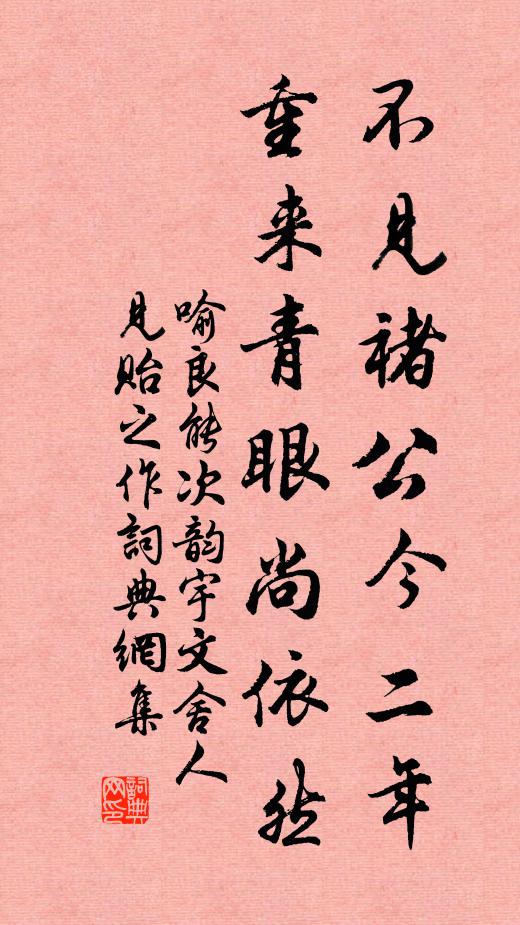 不見褚公今二年
重来青眼尚依然
喻良能次韵宇文舍人
見貽之作詞典網集
詞典网印